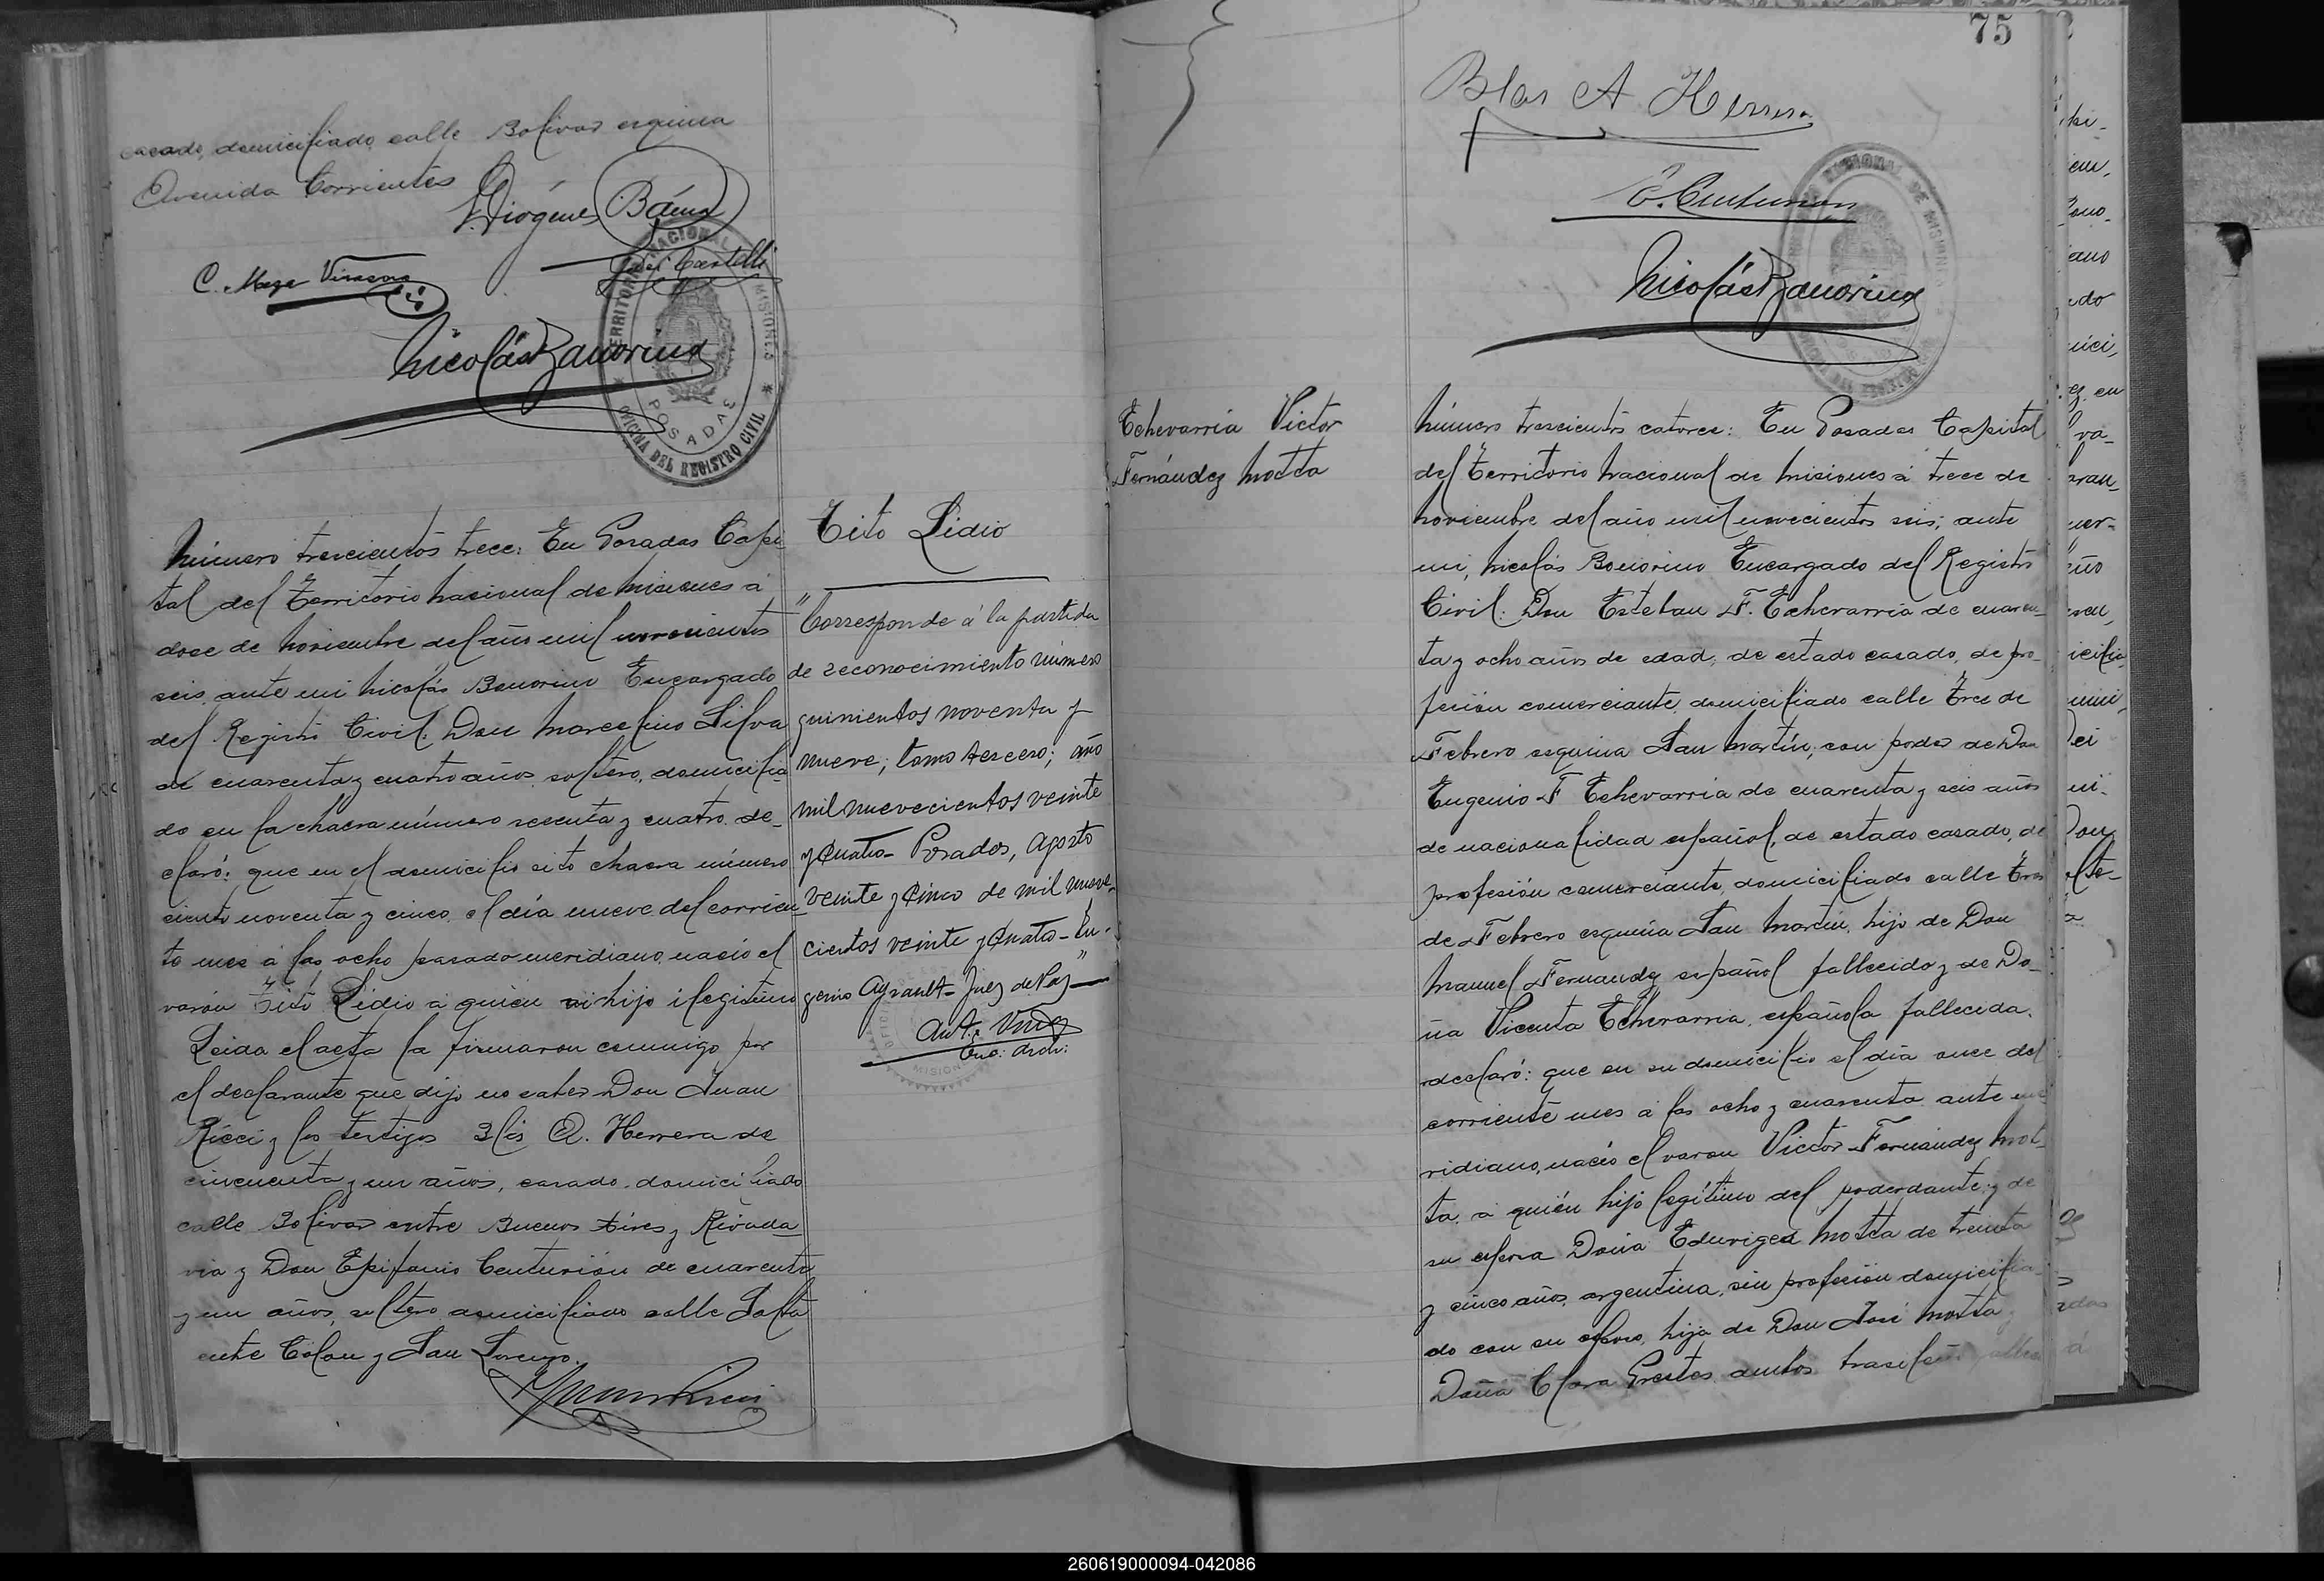 casado, domiciliado calle Bolivar esquina
Avenida Corrientes
Diógenes Báena
José Castelli
C. Meza Virasoro
Nicolás Bonorino
TERRITORIO NACIONAL MISIONES
POSADAS
OFICINA DEL REGISTRO CIVIL
Número trescientos trece: En Posadas Capi
tal del Territorio Nacional de Misiones á
doce de Noviembre del año mil novecientos
seis, ante mi Nicolás Bonorino Encargado
del Registro Civil: Don Marcelino Silva
de cuarenta y cuatro años, soltero, domicilia
do en la chacra número sesenta y cuatro, de-
claró: que en el domicilio sito chacra número
ciento noventa y cinco, el día nueve del corrien
te mes á las ocho pasado meridiano, nació el
varón Tito Lidio á quién hijo ilegítimo
Leida el acta la firmaron conmigo por
el declarante que dijo no saber Don Juan
Ricci y los testigos Blás A. Herrera de
cincuenta y un años, casado, domiciliado
calle Bolivar entre Buenos Aires y Rivada
via y Don Epifanio Centurión de cuarenta
y un años, soltero domiciliado calle Salta
entre Colon y San Lorenzo.
Juan Ricci
Tito Lidio
"Corresponde á la partida
de reconocimiento número
quinientos noventa y
nueve; tomo tercero; año
mil nuevecientos veinte
y cuatro- Posadas, Agosto
veinte y cinco de mil nueve-
cientos veinte y cuatro- Eu-
genio Ayrault- Juez de Paz"—
Enc: Arch:
75
Blas A Herrera
E. Centurion
Nicolás Bonorino
Echevarria Victor
Fernández Motta
Número trescientos catorce: En Posadas Capital
del Territorio Nacional de Misiones á trece de
Noviembre del año mil novecientos seis; ante
mi, Nicolás Bonorino Encargado del Registro
Civil: Don Esteban F. Echevarria de cuaren-
ta y ocho años de edad, de estado casado, de pro-
fesión comerciante, domiciliado calle Tres de
Febrero esquina San Martín; con poder de Don
Eugenio F Echevarria de cuarenta y seis años
de nacionalidad español, de estado casado, de
profesión comerciante, domiciliado calle Tres
de Febrero esquina San Martín, hijo de Don
Manuel Fernandez español fallecido y de Do-
ña Vicenta Echevarria, española fallecida,
declaró: que en su domicilio el día once del
corriente mes á las ocho y cuarenta ante me
ridiano, nació el varon Victor Fernández Mot-
ta, a quién hijo legítimo del poderdante y de
su esposa Doña Eduviges Motta de treinta
y cinco años, argentina, sin profesión domicilia-
do con su esposo, hija de Don José Motta y
Doña Clara Prestes ambos brasileños
260619000094-042086